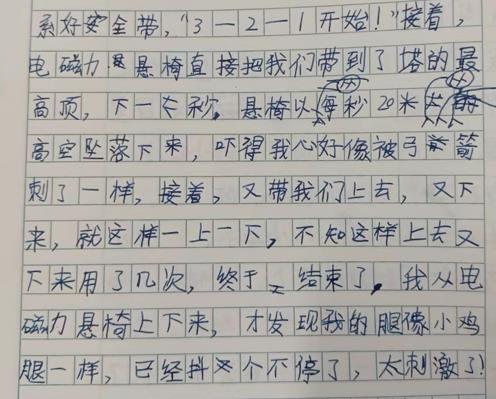 系好安全带，“3—2—1开始！”接着，
电磁力悬椅直接把我们带到了塔的最
高顶，下一秒，悬椅以每秒20米从
高空坠落下来，吓得我心好像被弓箭
刺了一样，接着，又带我们上去，又下
来，就这样一上一下，不知这样上去又
下来用了几次，终于结束了，我从电
磁力悬椅上下来，才发现我的腿像小鸡
腿一样，已经抖个不停了，太刺激了！